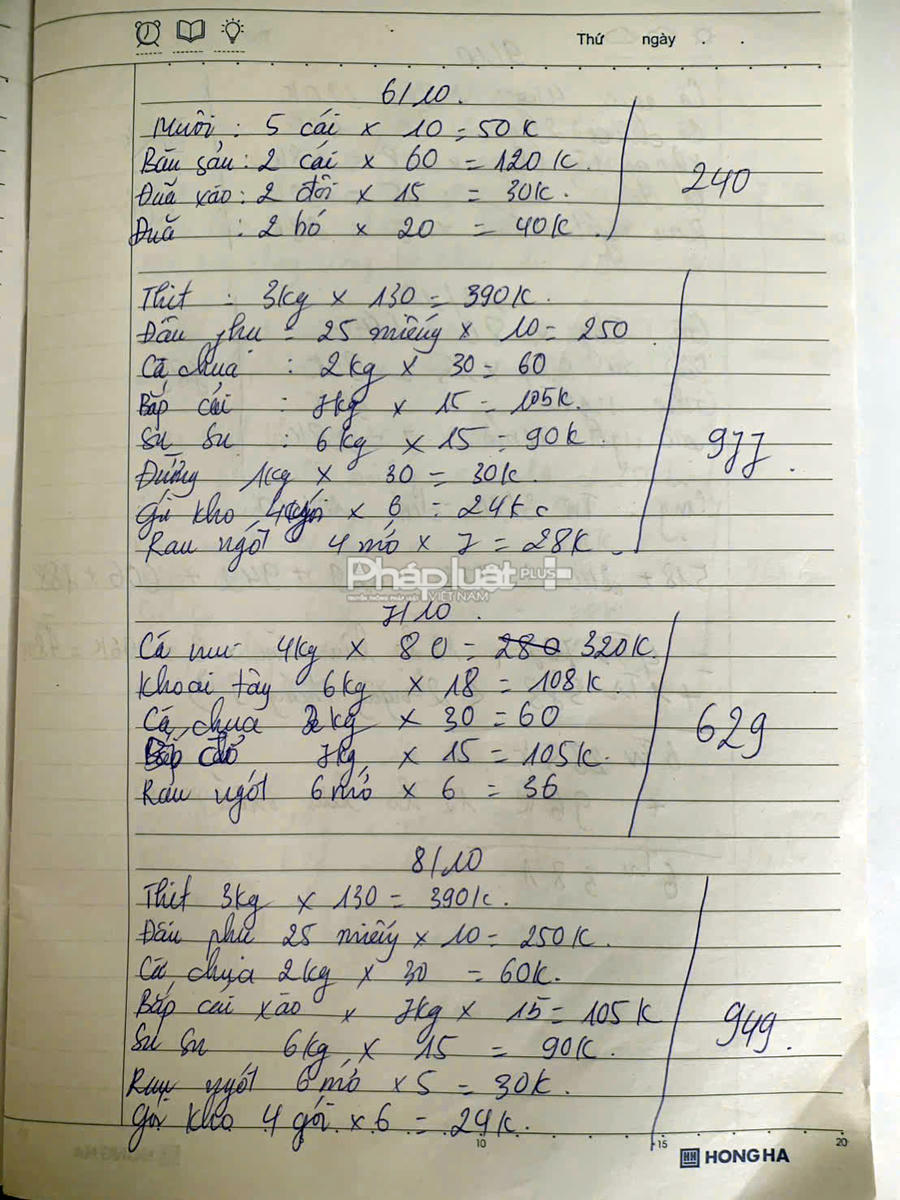 Thứ ngày . .
6/10.
Muôi : 5 cái x 10 = 50K
Bàn sản : 2 cái x 60 = 120K.
Đuã xào : 2 đôi x 15 = 30K.
Đuã : 2 bó x 20 = 40K.
240
Thit : 3kg x 130 = 390K.
Đâu phu = 25 miếng x 10 = 250
Cà chua : 2kg x 30 = 60
Bắp cải : 7kg x 15 = 105K.
Su Su : 6kg x 15 = 90K.
Đường 1kg x 30 = 30K.
Gói kho 4 gói x 6 = 24K
Rau ngót 4 mớ x 7 = 28K.
977.
Pháp luật PLUS+
TRUYỀN THÔNG PHÁP LUẬT VIỆT NAM
7/10
Cá 4kg x 80 = 280 320K
Khoai tây 6kg x 18 = 108K.
Cà chua 2kg x 30 = 60
Bắp 7kg x 15 = 105K.
Rau ngót 6 mớ x 6 = 36
629
8/10
Thit 3kg x 130 = 390K.
Đâu phu 25 miếng x 10 = 250K.
Cà chua 2kg x 30 = 60K.
Bắp cải xào x 7kg x 15 = 105K
Su Su 6kg x 15 = 90K.
Rau ngót 6 mớ x 5 = 30K.
Gói kho 4 gói x 6 = 24K.
949.
10 15 20
HH HONG HA